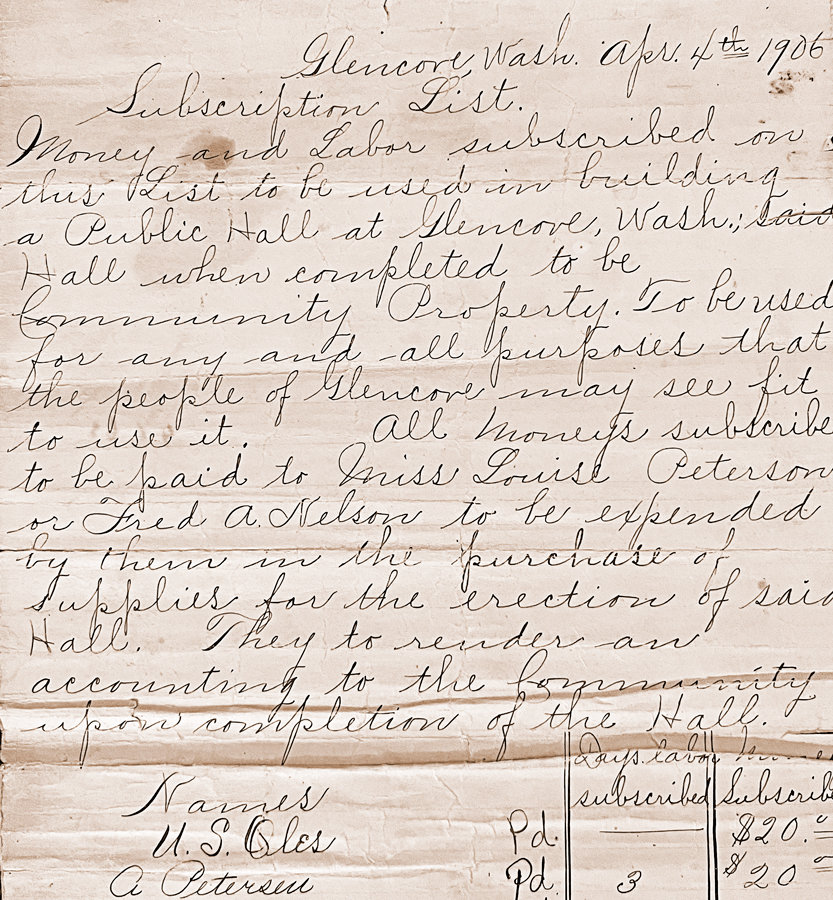 Glencove, Wash. Apr. 4th 1906
Subscription List.
Money and Labor subscribed on
this List to be used in building
a Public Hall at Glencove, Wash.; said
Hall when completed to be
Community Property. To be used
for any and all purposes that
the people of Glencove may see fit
to use it. All Moneys subscribe
to be paid to Miss Louise Peterson
or Fred A. Nelson to be expended
by them in the purchase of
supplies for the erection of said
Hall. They to render an
accounting to the Community
upon completion of the Hall.
Days labor
Names subscribed Subscribe
U. S. Oles Pd. $20.
A Petersen Pd. 3 $20